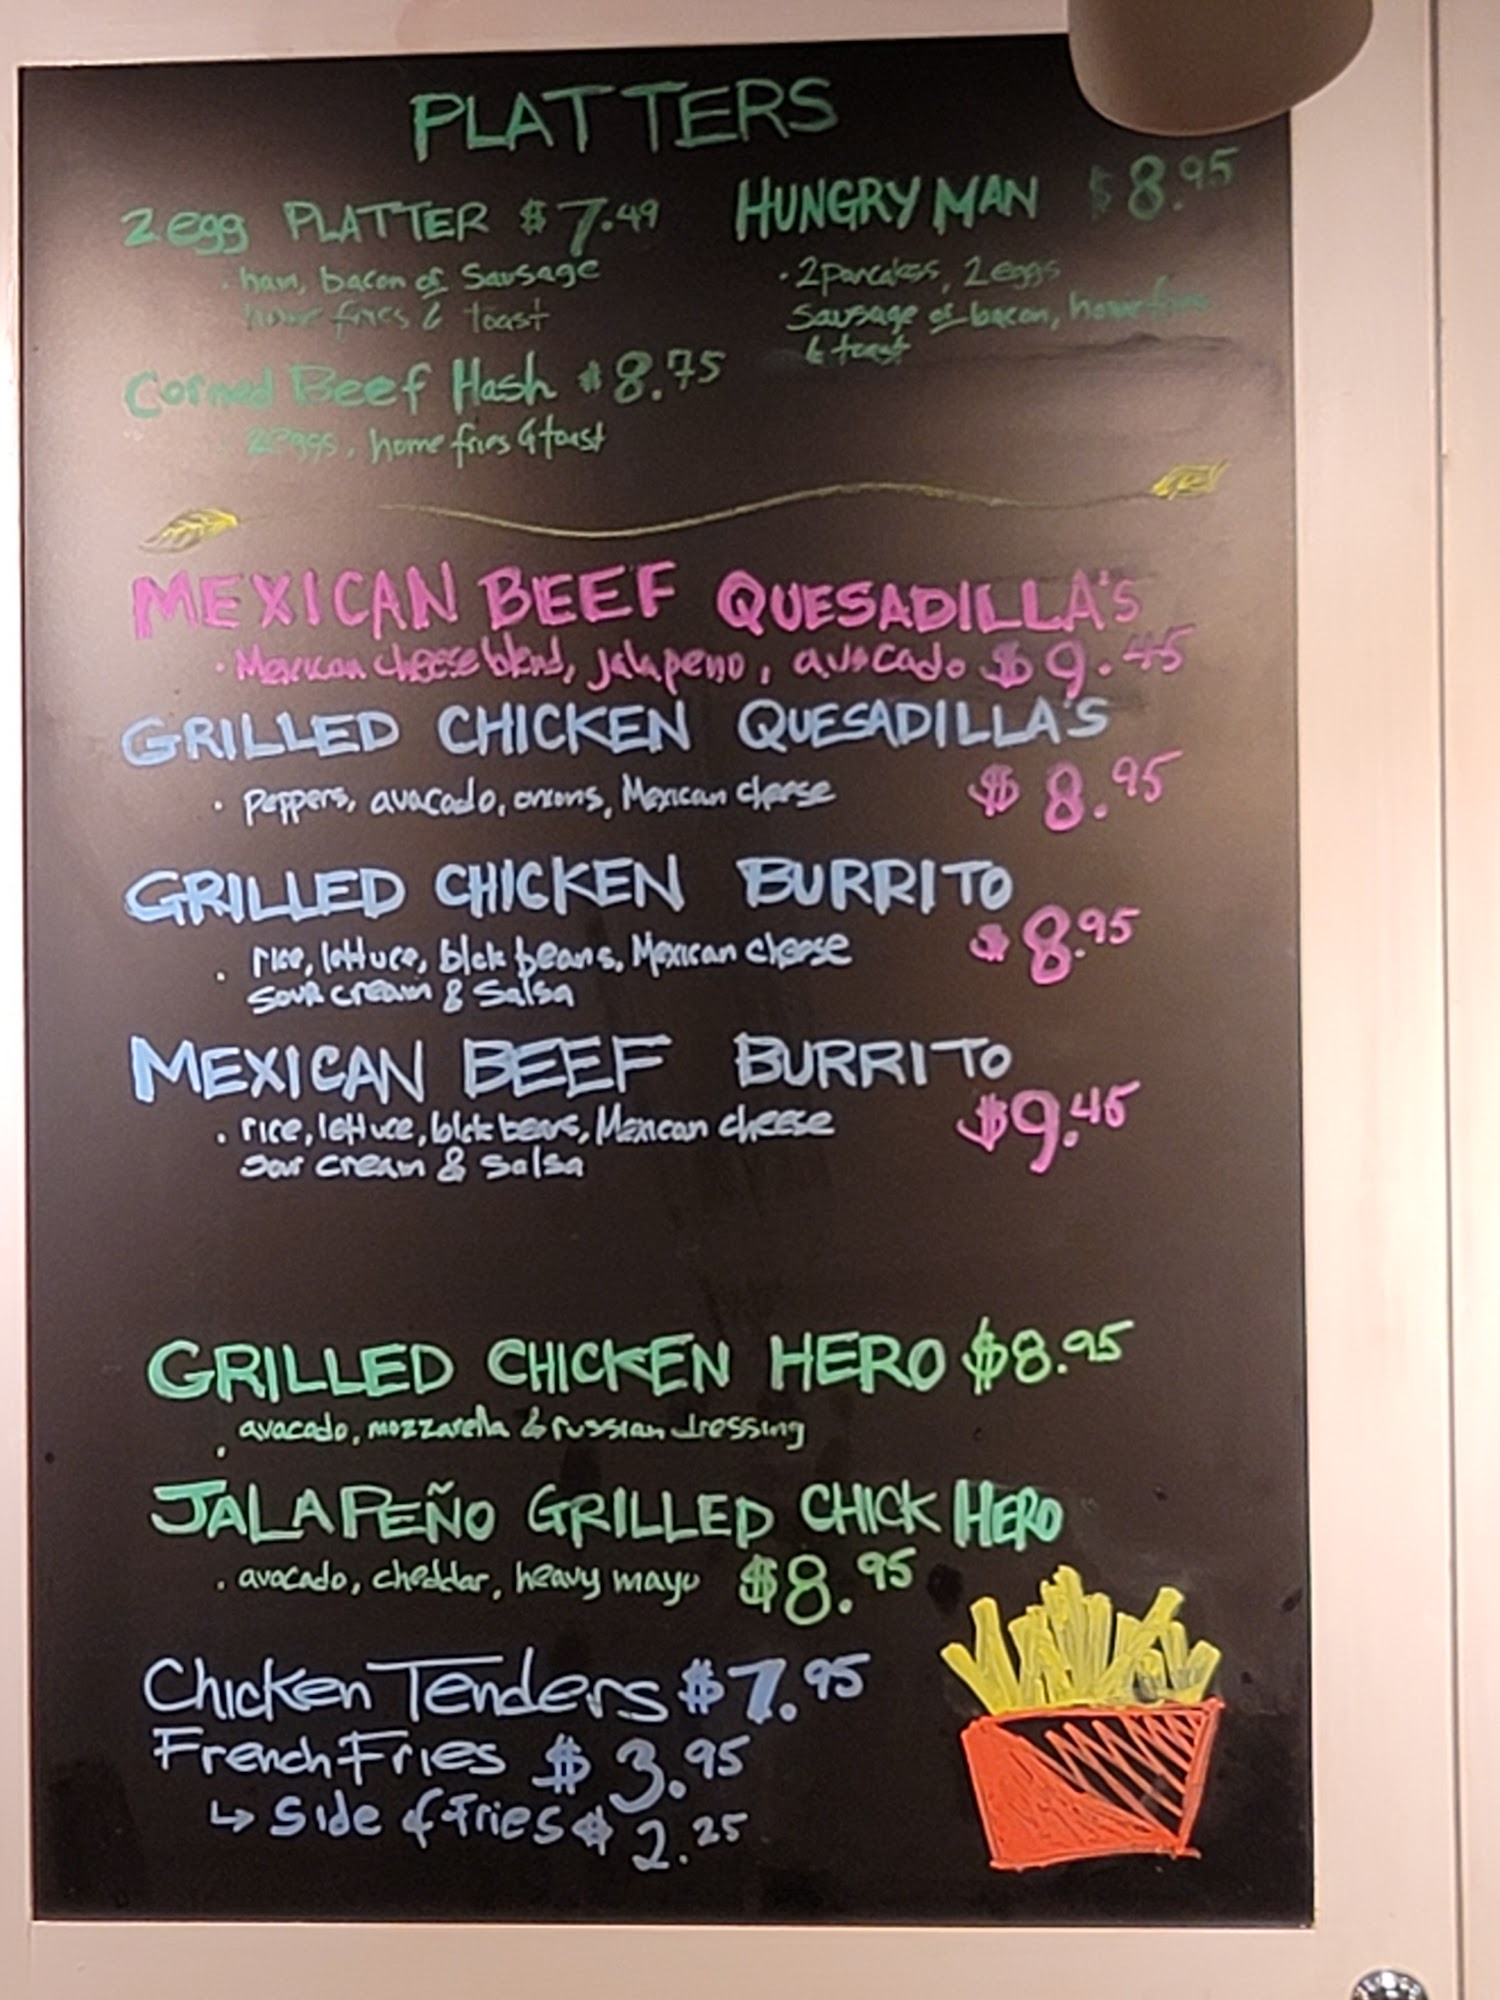 PLATTERS
2 egg PLATTER $7.49
· ham, bacon or Sausage
home fries & toast
HUNGRY MAN $8.95
· 2 pancakes, 2 eggs
Sausage or bacon, home fries
& toast
Corned Beef Hash $8.75
2 eggs, home fries & toast
MEXICAN BEEF QUESADILLA'S
· Mexican cheese blend, jalapeno, avocado $9.45
GRILLED CHICKEN QUESADILLA'S
· peppers, avacado, onions, Mexican cheese $8.95
GRILLED CHICKEN BURRITO
· rice, lettuce, blck beans, Mexican cheese $8.95
Sour cream & Salsa
MEXICAN BEEF BURRITO
· rice, lettuce, blck beans, Mexican cheese $9.45
Sour cream & Salsa
GRILLED CHICKEN HERO $8.95
· avacado, mozzarella & russian dressing
JALAPEÑO GRILLED CHICK HERO
· avocado, cheddar, heavy mayo $8.95
Chicken Tenders $7.95
French Fries $3.95
↳ Side of Fries $2.25